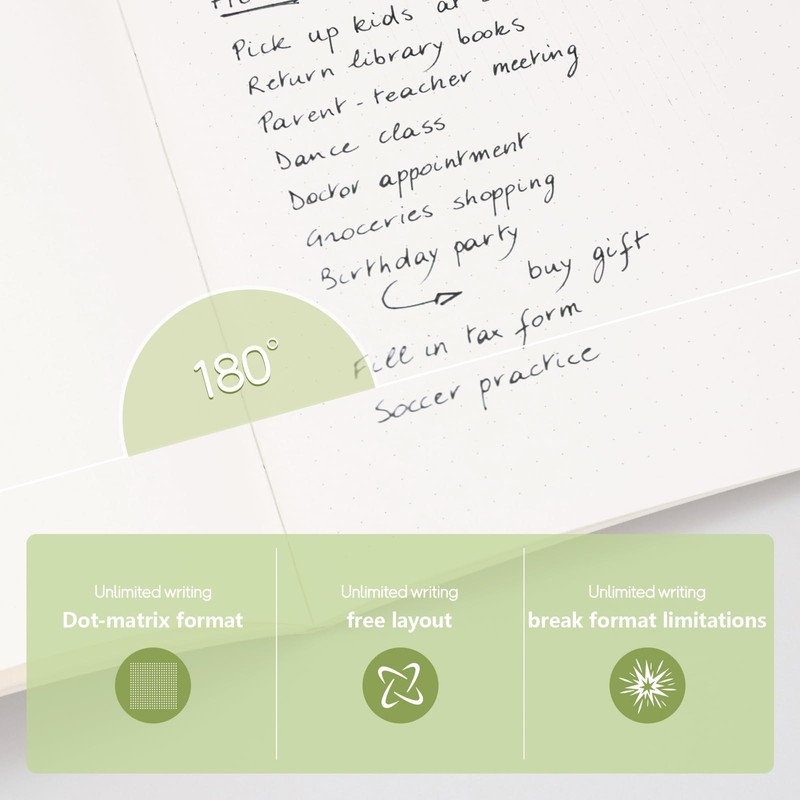 Pick up kids at
Return library books
Parent-teacher meeting
Dance class
Doctor appointment
Groceries shopping
Birthday party
buy gift
Fill in tax form
Soccer practice
180°
Unlimited writing
Dot-matrix format
Unlimited writing
free layout
Unlimited writing
break format limitations